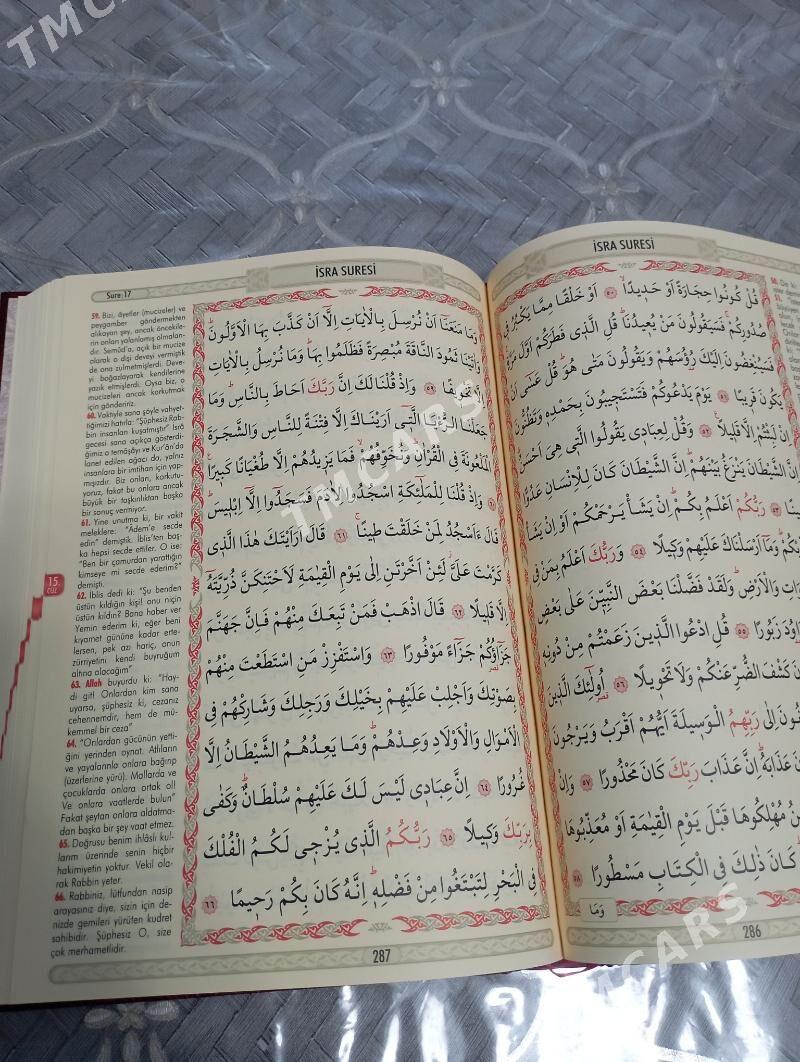 TMCARS
İSRA SURESİ
286
قُلْ كُونُوا حِجَارَةً اَوْ حَدٖيدًاۙ ﴿٥٠﴾ اَوْ خَلْقًا مِمَّا يَكْبُرُ فٖى
صُدُورِكُمْۚ فَسَيَقُولُونَ مَنْ يُعٖيدُنَاؕ قُلِ الَّذٖى فَطَرَكُمْ اَوَّلَ مَرَّةٍۚ
فَسَيُنْغِضُونَ اِلَيْكَ رُؤُ۫سَهُمْ وَيَقُولُونَ مَتٰى هُوَؕ قُلْ عَسٰٓى اَنْ
يَكُونَ قَرٖيبًا ﴿٥١﴾ يَوْمَ يَدْعُوكُمْ فَتَسْتَجٖيبُونَ بِحَمْدِهٖ وَتَظُنُّونَ
اِنْ لَبِثْتُمْ اِلَّا قَلٖيلًا ﴿٥٢﴾ وَقُلْ لِعِبَادٖى يَقُولُوا الَّتٖى هِىَ اَحْسَنُؕ
اِنَّ الشَّيْطَانَ يَنْزَغُ بَيْنَهُمْؕ اِنَّ الشَّيْطَانَ كَانَ لِلْاِنْسَانِ عَدُوًّا
رَبُّكُمْ اَعْلَمُ بِكُمْؕ اِنْ يَشَأْ يَرْحَمْكُمْ اَوْ اِنْ يَشَأْ
وَمَٓا اَرْسَلْنَاكَ عَلَيْهِمْ وَكٖيلًا ﴿٥٤﴾ وَرَبُّكَ اَعْلَمُ بِمَنْ فِى
وَالْاَرْضِؕ وَلَقَدْ فَضَّلْنَا بَعْضَ النَّبِيّٖنَ عَلٰى بَعْضٍ
زَبُورًا ﴿٥٥﴾ قُلِ ادْعُوا الَّذٖينَ زَعَمْتُمْ مِنْ دُونِهٖ
كَشْفَ الضُّرِّ عَنْكُمْ وَلَا تَحْوٖيلًا ﴿٥٦﴾ اُو۬لٰٓئِكَ الَّذٖينَ
اِلٰى رَبِّهِمُ الْوَسٖيلَةَ اَيُّهُمْ اَقْرَبُ وَيَرْجُونَ
عَذَابَهُؕ اِنَّ عَذَابَ رَبِّكَ كَانَ مَحْذُورًا ﴿٥٧﴾ وَاِنْ
مُهْلِكُوهَا قَبْلَ يَوْمِ الْقِيٰمَةِ اَوْ مُعَذِّبُوهَا
كَانَ ذٰلِكَ فِى الْكِتَابِ مَسْطُورًا ﴿٥٨﴾
وَمَا
İSRA SURESİ
Sure:17
287
وَمَا مَنَعَنَٓا اَنْ نُرْسِلَ بِالْاٰيَاتِ اِلَّٓا اَنْ كَذَّبَ بِهَا الْاَوَّلُونَؕ
وَاٰتَيْنَا ثَمُودَ النَّاقَةَ مُبْصِرَةً فَظَلَمُوا بِهَاؕ وَمَا نُرْسِلُ بِالْاٰيَاتِ
اِلَّا تَخْوٖيفًا ﴿٥٩﴾ وَاِذْ قُلْنَا لَكَ اِنَّ رَبَّكَ اَحَاطَ بِالنَّاسِؕ وَمَا
جَعَلْنَا الرُّءْيَا الَّتٖٓى اَرَيْنَاكَ اِلَّا فِتْنَةً لِلنَّاسِ وَالشَّجَرَةَ
الْمَلْعُونَةَ فِى الْقُرْاٰنِؕ وَنُخَوِّفُهُمْۙ فَمَا يَزٖيدُهُمْ اِلَّا طُغْيَانًا كَبٖيرًا
﴿٦٠﴾ وَاِذْ قُلْنَا لِلْمَلٰٓئِكَةِ اسْجُدُوا لِاٰدَمَ فَسَجَدُٓوا اِلَّٓا اِبْلٖيسَؕ
قَالَ ءَاَسْجُدُ لِمَنْ خَلَقْتَ طٖينًاۚ ﴿٦١﴾ قَالَ اَرَاَيْتَكَ هٰذَا الَّذٖى
كَرَّمْتَ عَلَىَّؗ لَئِنْ اَخَّرْتَنِ اِلٰى يَوْمِ الْقِيٰمَةِ لَاَحْتَنِكَنَّ ذُرِّيَّتَهُٓ
اِلَّا قَلٖيلًا ﴿٦٢﴾ قَالَ اذْهَبْ فَمَنْ تَبِعَكَ مِنْهُمْ فَاِنَّ جَهَنَّمَ
جَزَٓاؤُ۬كُمْ جَزَٓاءً مَوْفُورًا ﴿٦٣﴾ وَاسْتَفْزِزْ مَنِ اسْتَطَعْتَ مِنْهُمْ
بِصَوْتِكَ وَاَجْلِبْ عَلَيْهِمْ بِخَيْلِكَ وَرَجِلِكَ وَشَارِكْهُمْ فِى
الْاَمْوَالِ وَالْاَوْلَادِ وَعِدْهُمْؕ وَمَا يَعِدُهُمُ الشَّيْطَانُ اِلَّا
غُرُورًا ﴿٦٤﴾ اِنَّ عِبَادٖى لَيْسَ لَكَ عَلَيْهِمْ سُلْطَانٌؕ وَكَفٰى
بِرَبِّكَ وَكٖيلًا ﴿٦٥﴾ رَبُّكُمُ الَّذٖى يُزْجٖى لَكُمُ الْفُلْكَ
فِى الْبَحْرِ لِتَبْتَغُوا مِنْ فَضْلِهٖؕ اِنَّهُ كَانَ بِكُمْ رَحٖيمًا ﴿٦٦﴾
59. Bizi, âyetler (mucizeler) ve
peygamber göndermekten
alıkoyan şey, ancak öncekile-
rin onları yalanlamış olmaları-
dır. Semûd'a, açık bir mucize
olarak o dişi deveyi vermiştik
de ona zulmetmişlerdi. Deve-
yi boğazlayarak kendilerine
yazık etmişlerdi. Oysa biz, o
mucizeleri ancak korkutmak
için göndeririz.
60. Vaktiyle sana şöyle vahyet-
tiğimizi hatırla: "Şüphesiz Rab-
bin insanları kuşatmıştır" İsrâ
gecesi sana açıkça gösterdi-
ğimiz o temâşâyı ve Kur'ân'da
lanet edilen ağacı da, yalnız
insanlara bir imtihan için yap-
mışızdır. Biz onları, korkutu-
yoruz, fakat bu onlara ancak
büyük bir taşkınlıktan başka
bir sonuç vermiyor.
61. Yine unutma ki, bir vakit
meleklere: "Âdem'e secde
edin" demiştik. İblis'ten baş-
ka hepsi secde ettiler. O ise:
"Ben bir çamurdan yarattığın
kimseye mi secde ederim?"
demişti.
62. İblis dedi ki: "Şu benden
üstün kıldığın kişi! onu niçin
üstün kıldın? Bana haber ver
Yemin ederim ki, eğer beni
kıyamet gününe kadar erte-
lersen, pek azı hariç, onun
zürriyetini kendi buyruğum
altına alacağım"
63. Allah buyurdu ki: "Hay-
di git! Onlardan kim sana
uyarsa, şüphesiz ki, cezanız
cehennemdir, hem de mü-
kemmel bir ceza"
64. "Onlardan gücünün yetti-
ğini yerinden oynat. Atlıların
ve yayalarınla onlara bağırıp
(üzerlerine yürü). Mallarda ve
çocuklarda onlara ortak ol!
Ve onlara vaatlerde bulun"
Fakat şeytan onlara aldatma-
dan başka bir şey vaat etmez.
65. Doğrusu benim ihlâslı kul-
larım üzerinde senin hiçbir
hakimiyetin yoktur. Vekil ola-
rak Rabbin yeter.
66. Rabbiniz, lütfundan nasip
arayasınız diye, sizin için de-
nizde gemileri yürüten kudret
sahibidir. Şüphesiz O, size
çok merhametlidir.
15.
CÜZ
TMCARS
TMCARS
TMCARS
TMCARS